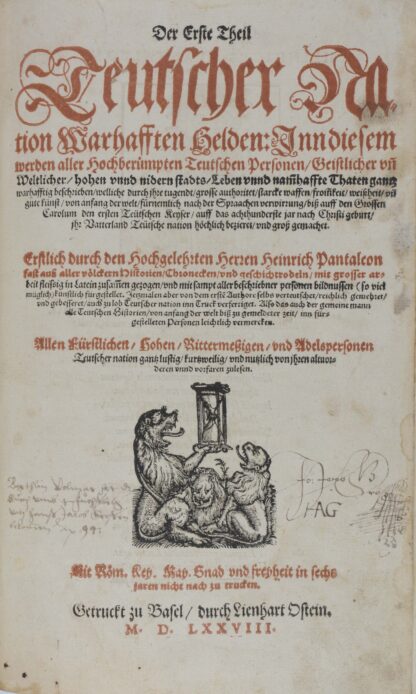 Der Erste Theil
Teutscher Na-
tion Warhafften Helden: Inn diesem
werden aller Hochberümpten Teutschen Personen/ Geistlicher vñ
Weltlicher/ hohen vnnd nidern stadts/ Leben vnnd nam̃haffte Thaten gantz
warhafftig beschriben/ welliche durch ihre tugendt/ grosse authoritet/ starcke waffen/ fromkeit/ weißheit/ vñ
gute künst/ von anfang der welt/ fürnemlich nach der Spraachen verwirrung/ biß auff den Grossen
Carolum den ersten Teütschen Keyser/ auff das achthunderste jar nach Christi geburt/
ihr Vatterland Teütsche nation höchlich bezieret/ vnd groß gemachet.
Erstlich durch den Hochgelehrten Herren Heinrich Pantaleon
fast auß aller völckern Historien/ Chronecken/ vnd geschichtrodeln/ mit grosser ar-
beit fleissig in Latein zusam̃en gezogen/ vnd mit sampt aller beschribner personen bildnussen (so viel
müglich) künstlich fürgestellet. Jezmalen aber von dem erste Authore selbs verteutschet/ reichlich gemehret/
vnd gebesseret/ auch zu lob Teutscher nation im Truck verfertiget. Also das auch der gemeine mann
alle Teutschen Historien/ von anfang der Welt biß zu gemeldeter zeit/ inn für-
gestelleten Personen leichtlich vermercken.
Allen Fürstlichen/ Hohen/ Rittermeßigen/ vnd Adelspersonen
Teutscher nation gantz lustig/ kurtzweilig/ vnd nutzlich von jhren altuor-
deren vnnd vorfaren zulesen.
HAG
Mit Röm. Key. May. Gnad vnd freyheit in sechs
jaren nicht nach zu trucken.
Getruckt zu Basel/ durch Lienhart Ostein.
M. D. LXXVIII.